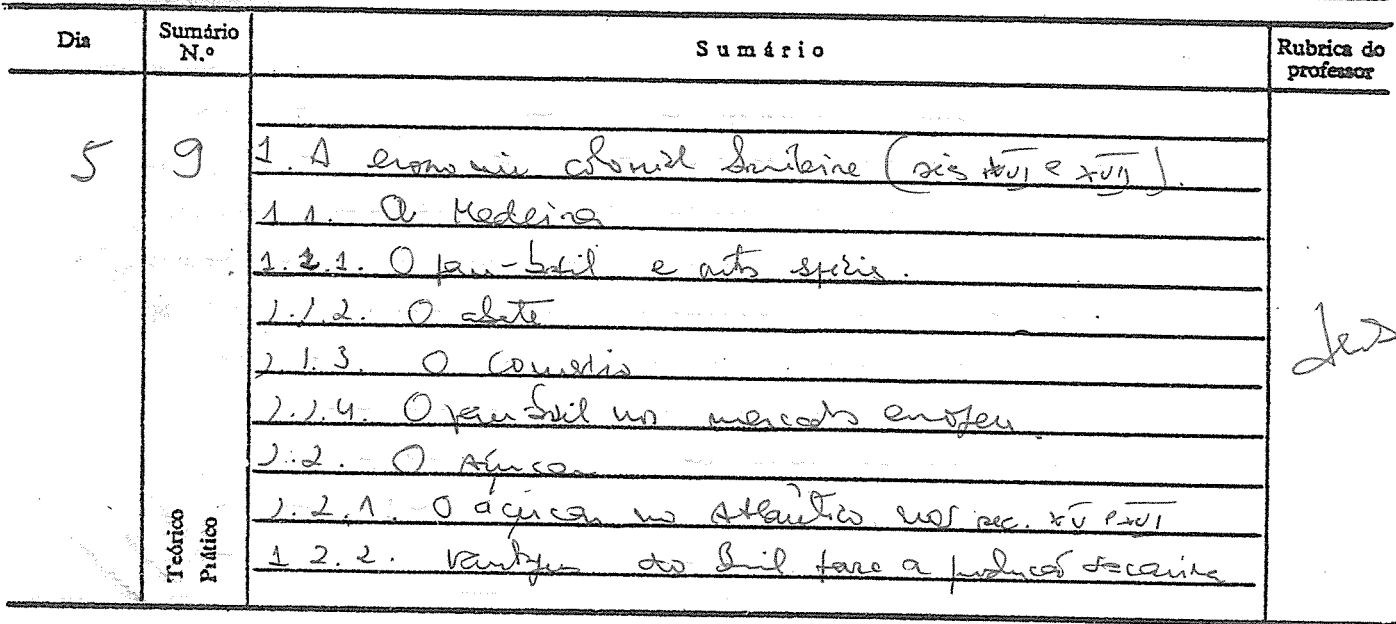 Dia Sumário N.º Sumário Rubrica do professor
5 9 1. A economia colonial brasileira (sécs XVI e XVII).
1.1. A Madeira
1.1.1. O pau-brasil e outras espécies.
1.1.2. O abate
1.1.3. O Comércio
1.1.4. O pau-brasil no mercado europeu.
1.2. O Açúcar
1.2.1. O açúcar no Atlântico nos sec. XV e XVI
1.2.2. Vantagens do Brasil para a produção
Teórico
Prático